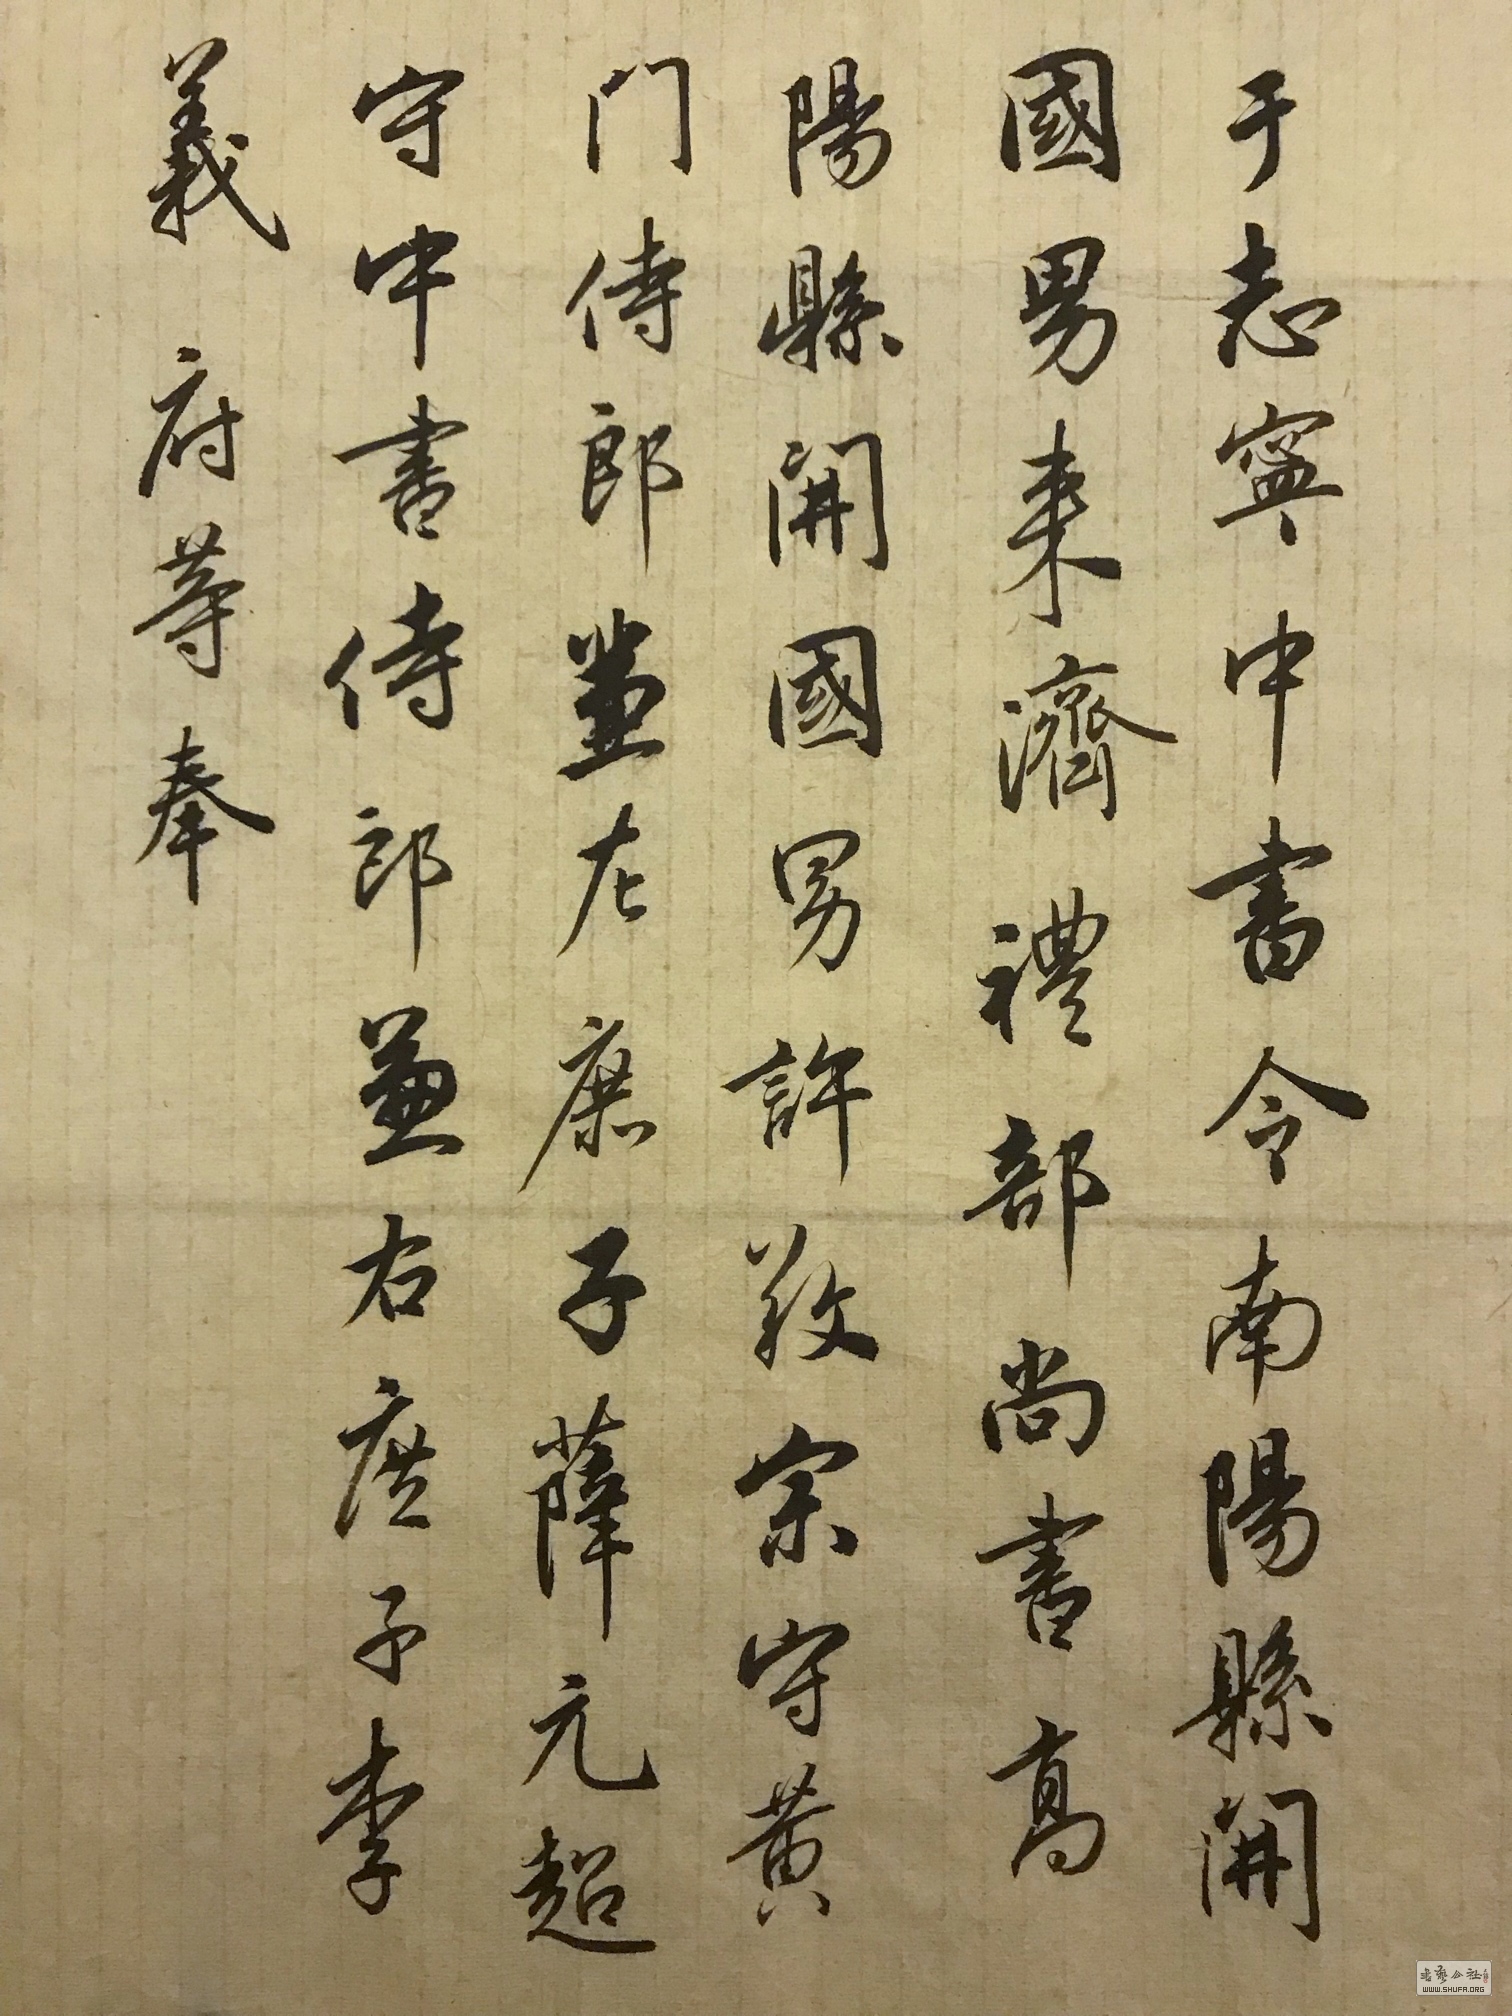 于志寧中書令南陽縣開
國男来濟禮部尚書高
陽縣開國男許敬宗守黃
门侍郎兼左庶子薛元超
守中書侍郎兼右庶子李
義府等奉
書藝公社
WWW.SHUFA.ORG